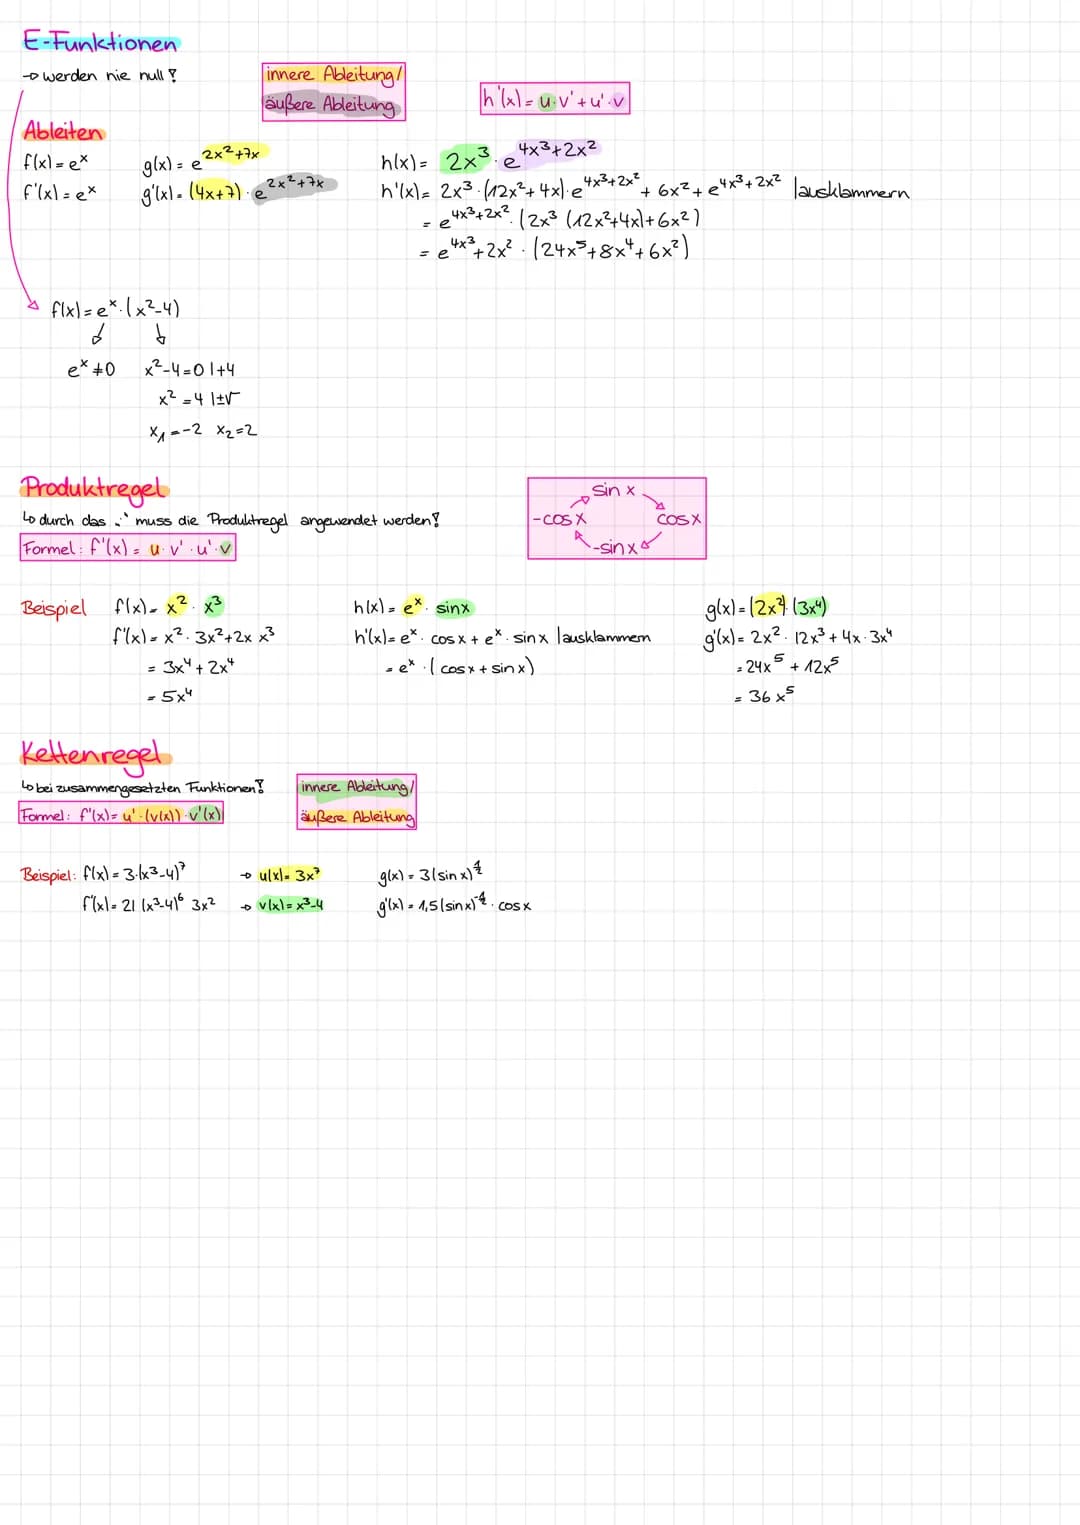 E-Funktionen
→ werden nie null!
innere Ableitung/
äußere Ableitung
h'(x) = u·v' + u'·v
Ableiten
f(x) = eˣ
f'(x) = eˣ
g(x) = e^(2x²+7x)
g'(x) = (4x+7) · e^(2x²+7x)
h(x) = 2x³ · e^(4x³+2x²)
h'(x) = 2x³ · (12x²+4x) · e^(4x³+2x²) + 6x² + e^(4x³+2x²) |ausklammern
= e^(4x³+2x²) · (2x³ (12x²+4x)+6x²)
= e^(4x³)+2x² · (24x⁵+8x⁴+6x²)
f(x) = eˣ · (x²-4)
eˣ ≠ 0 x²-4=0 |+4
x² = 4 |±√
x₁ = -2 x₂ = 2
Produktregel
↳ durch das „·“ muss die Produktregel angewendet werden!
Formel: f'(x) = u · v' · u' · v
sin x
-cos x cos x
-sin x
Beispiel f(x) = x² · x³
f'(x) = x² · 3x² + 2x x³
= 3x⁴ + 2x⁴
= 5x⁴
h(x) = eˣ · sinx
h'(x) = eˣ · cos x + eˣ · sin x |ausklammern
= eˣ · (cos x + sin x)
g(x) = (2x²) · (3x⁴)
g'(x) = 2x² · 12x³ + 4x · 3x⁴
= 24x⁵ + 12x⁵
= 36x⁵
Kettenregel
↳ bei zusammengesetzten Funktionen!
Formel: f'(x) = u' · (v(x)) · v'(x)
innere Ableitung/
äußere Ableitung
Beispiel: f(x) = 3·(x³-4)⁷ → u(x) = 3x⁷
f'(x) = 21 (x³-4)⁶ 3x² → v(x) = x³-4
g(x) = 3(sin x)^½
g'(x) = 1,5 (sin x)^-½ · cos x